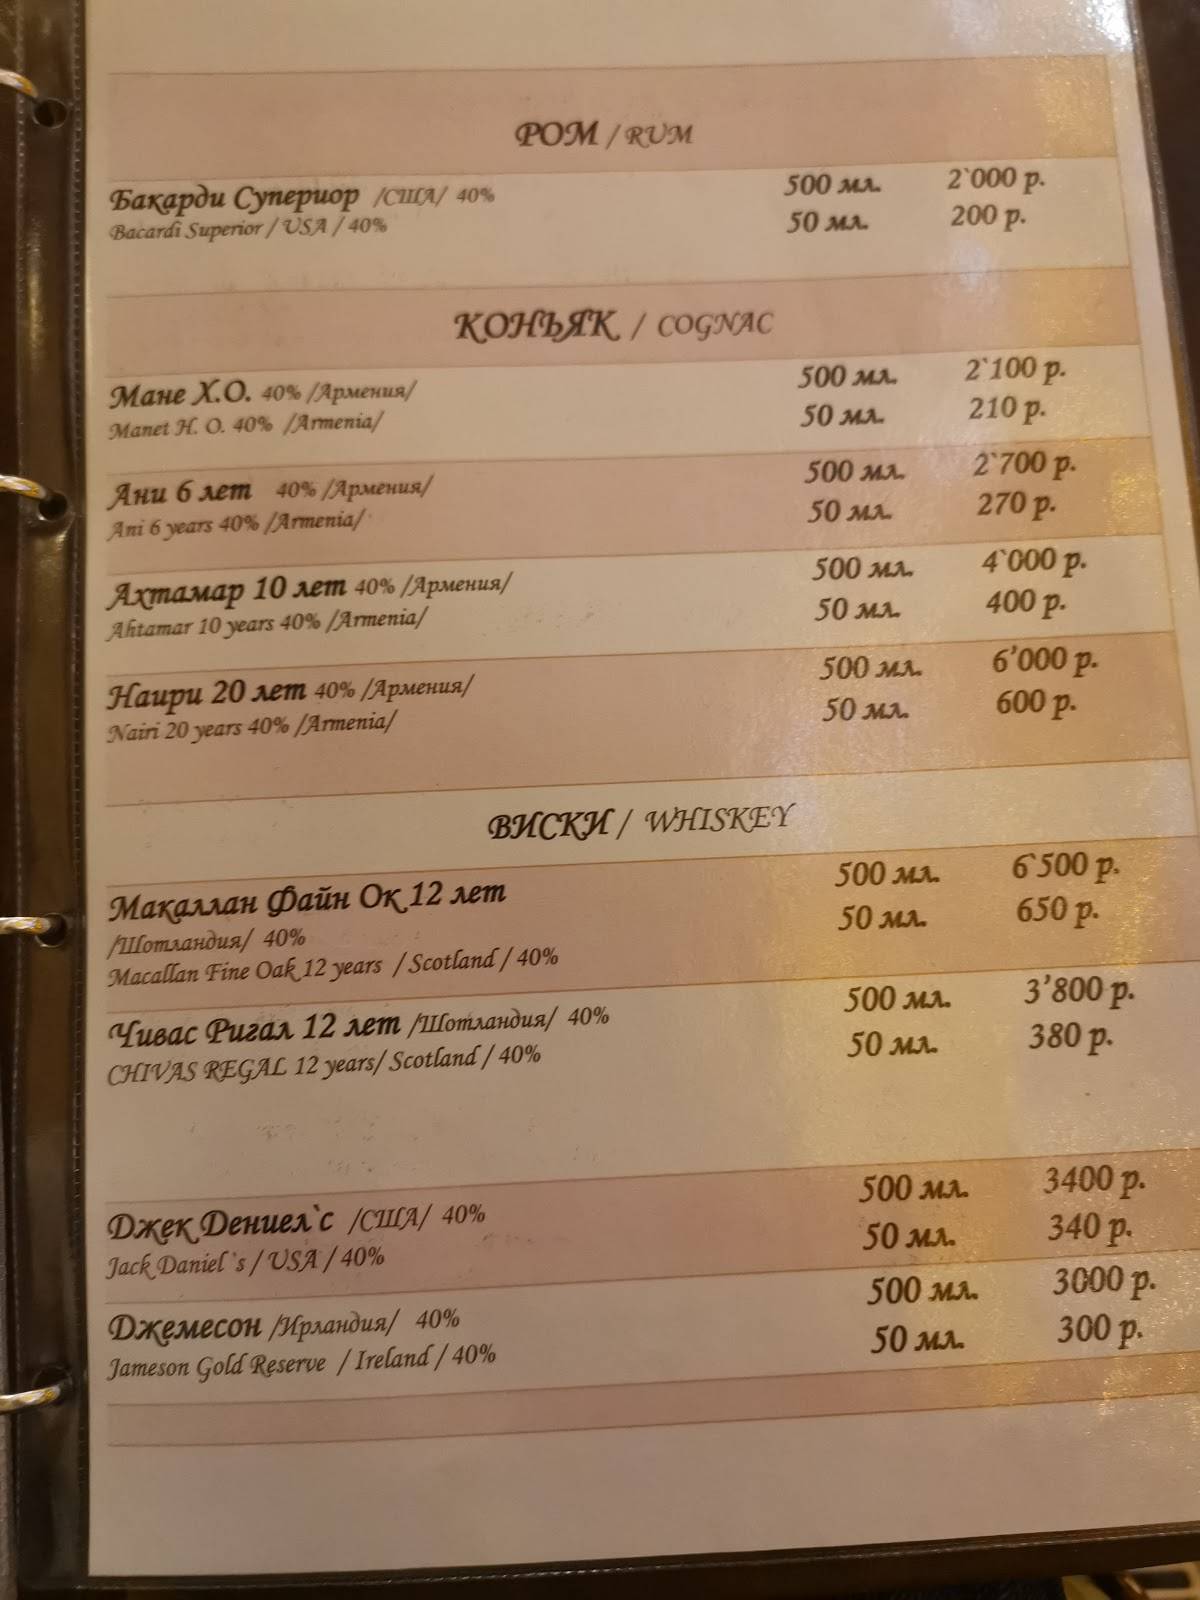 РОМ / RUM
Бакарди Супериор /США/ 40% 500 мл. 2`000 р.
Bacardi Superior / USA / 40% 50 мл. 200 р.
КОНЬЯК / COGNAC
Мане Х.О. 40% /Армения/ 500 мл. 2`100 р.
Manet H. O. 40% /Armenia/ 50 мл. 210 р.
Ани 6 лет 40% /Армения/ 500 мл. 2`700 р.
Ani 6 years 40% /Armenia/ 50 мл. 270 р.
Ахтамар 10 лет 40% /Армения/ 500 мл. 4`000 р.
Ahtamar 10 years 40% /Armenia/ 50 мл. 400 р.
Наири 20 лет 40% /Армения/ 500 мл. 6’000 р.
Nairi 20 years 40% /Armenia/ 50 мл. 600 р.
ВИСКИ / WHISKEY
Макаллан Файн Ок 12 лет 500 мл. 6`500 р.
/Шотландия/ 40% 50 мл. 650 р.
Macallan Fine Oak 12 years / Scotland / 40%
Чивас Ригал 12 лет /Шотландия/ 40% 500 мл. 3’800 р.
CHIVAS REGAL 12 years/ Scotland / 40% 50 мл. 380 р.
Джек Дениел`с /США/ 40% 500 мл. 3400 р.
Jack Daniel`s / USA / 40% 50 мл. 340 р.
Джемесон /Ирландия/ 40% 500 мл. 3000 р.
Jameson Gold Reserve / Ireland / 40% 50 мл. 300 р.